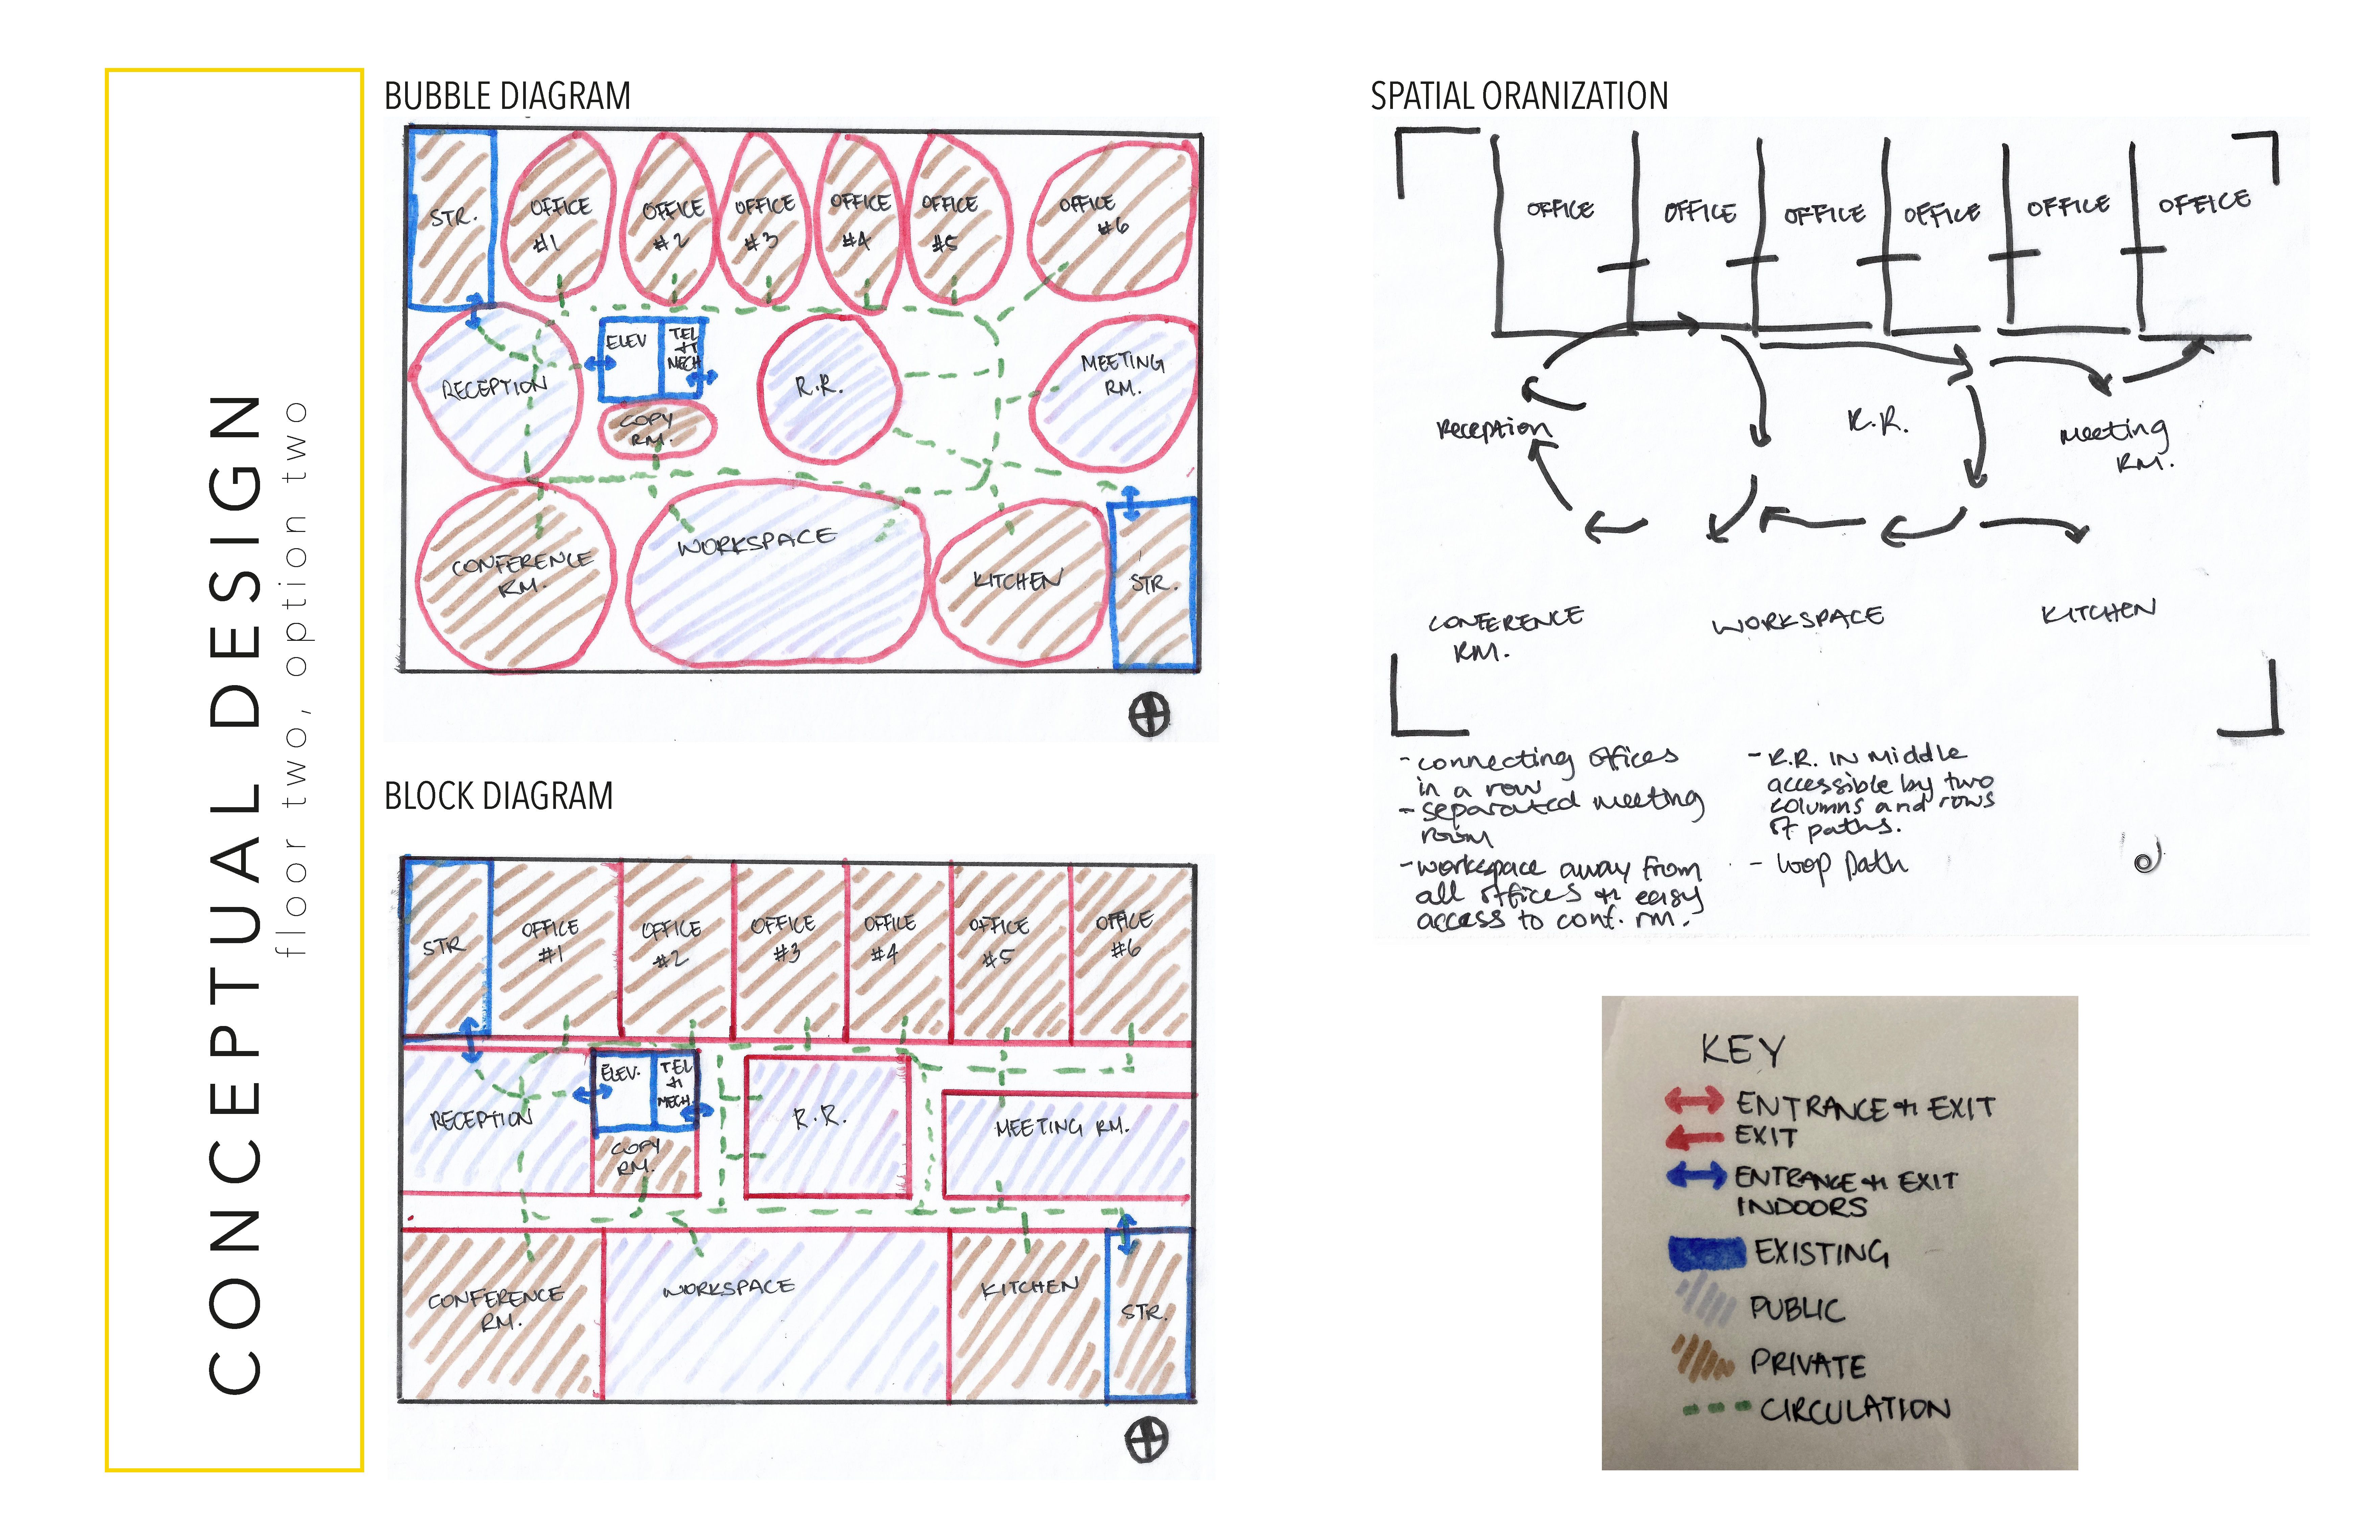 CONCEPTUAL DESIGN
floor two, option two
BUBBLE DIAGRAM
STR.
OFFICE
#1
OFFICE
#2
OFFICE
#3
OFFICE
#4
OFFICE
#5
OFFICE
#6
RECEPTION
ELEV
TEL
+
MECH
COPY
RM.
R.R.
MEETING
RM.
CONFERENCE
RM.
WORKSPACE
KITCHEN
STR.
BLOCK DIAGRAM
STR
OFFICE
#1
OFFICE
#2
OFFICE
#3
OFFICE
#4
OFFICE
#5
OFFICE
#6
RECEPTION
ELEV.
TEL
+
MECH.
COPY
RM.
R.R.
MEETING RM.
CONFERENCE
RM.
WORKSPACE
KITCHEN
STR.
SPATIAL ORANIZATION
OFFICE
OFFICE
OFFICE
OFFICE
OFFICE
OFFICE
Reception
R.R.
Meeting
RM.
CONFERENCE
RM.
WORKSPACE
KITCHEN
- connecting offices
in a row
- separated meeting
room
- workspace away from
all offices + easy
access to conf. rm.
- R.R. IN Middle
accessible by two
columns and rows
of paths.
- loop path
KEY
ENTRANCE + EXIT
EXIT
ENTRANCE + EXIT
INDOORS
EXISTING
PUBLIC
PRIVATE
CIRCULATION